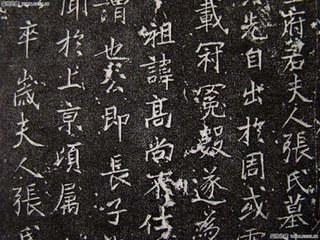 府君夫人張氏墓
先自出於周或
載冠冕弈遂為
祖諱高尚不仕
謂也公即長子
聞於上京頃属
卒歲夫人張氏